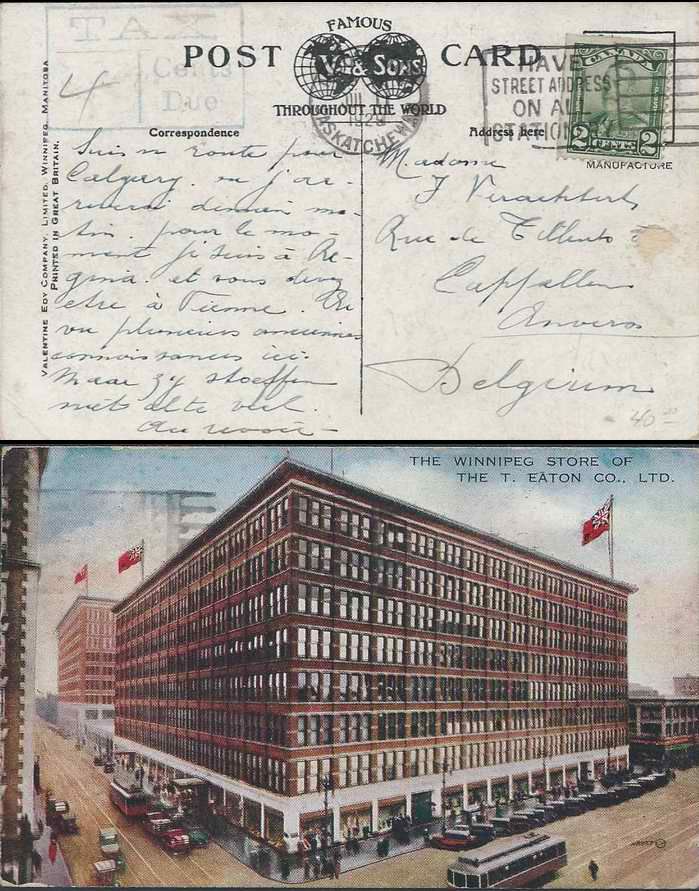 TAX
4 Cents
Due
FAMOUS
POST CARD
V. & SONS
THROUGHOUT THE WORLD
SASKATCHEWAN
HAVE
STREET ADDRESS
ON AL
STATION
CANADA
2 2
MANUFACTURE
VALENTINE EDY COMPANY, LIMITED, WINNIPEG, MANITOBA
PRINTED IN GREAT BRITAIN.
Correspondence
Address here
Suis en route pour
Calgary. ou j'ar-
riverai demain ma-
tin. pour le mo-
ment je suis à Re-
gina. et vous devez
etre à Vienne.
vu plusieurs anciennes
connaissances ici.
Maar zy stoeffen
niets alte veel.
Au revoir -
Madame
J
Rue de
Cappellen
Anvers
Belgium
40
THE WINNIPEG STORE OF
THE T. EATON CO., LTD.